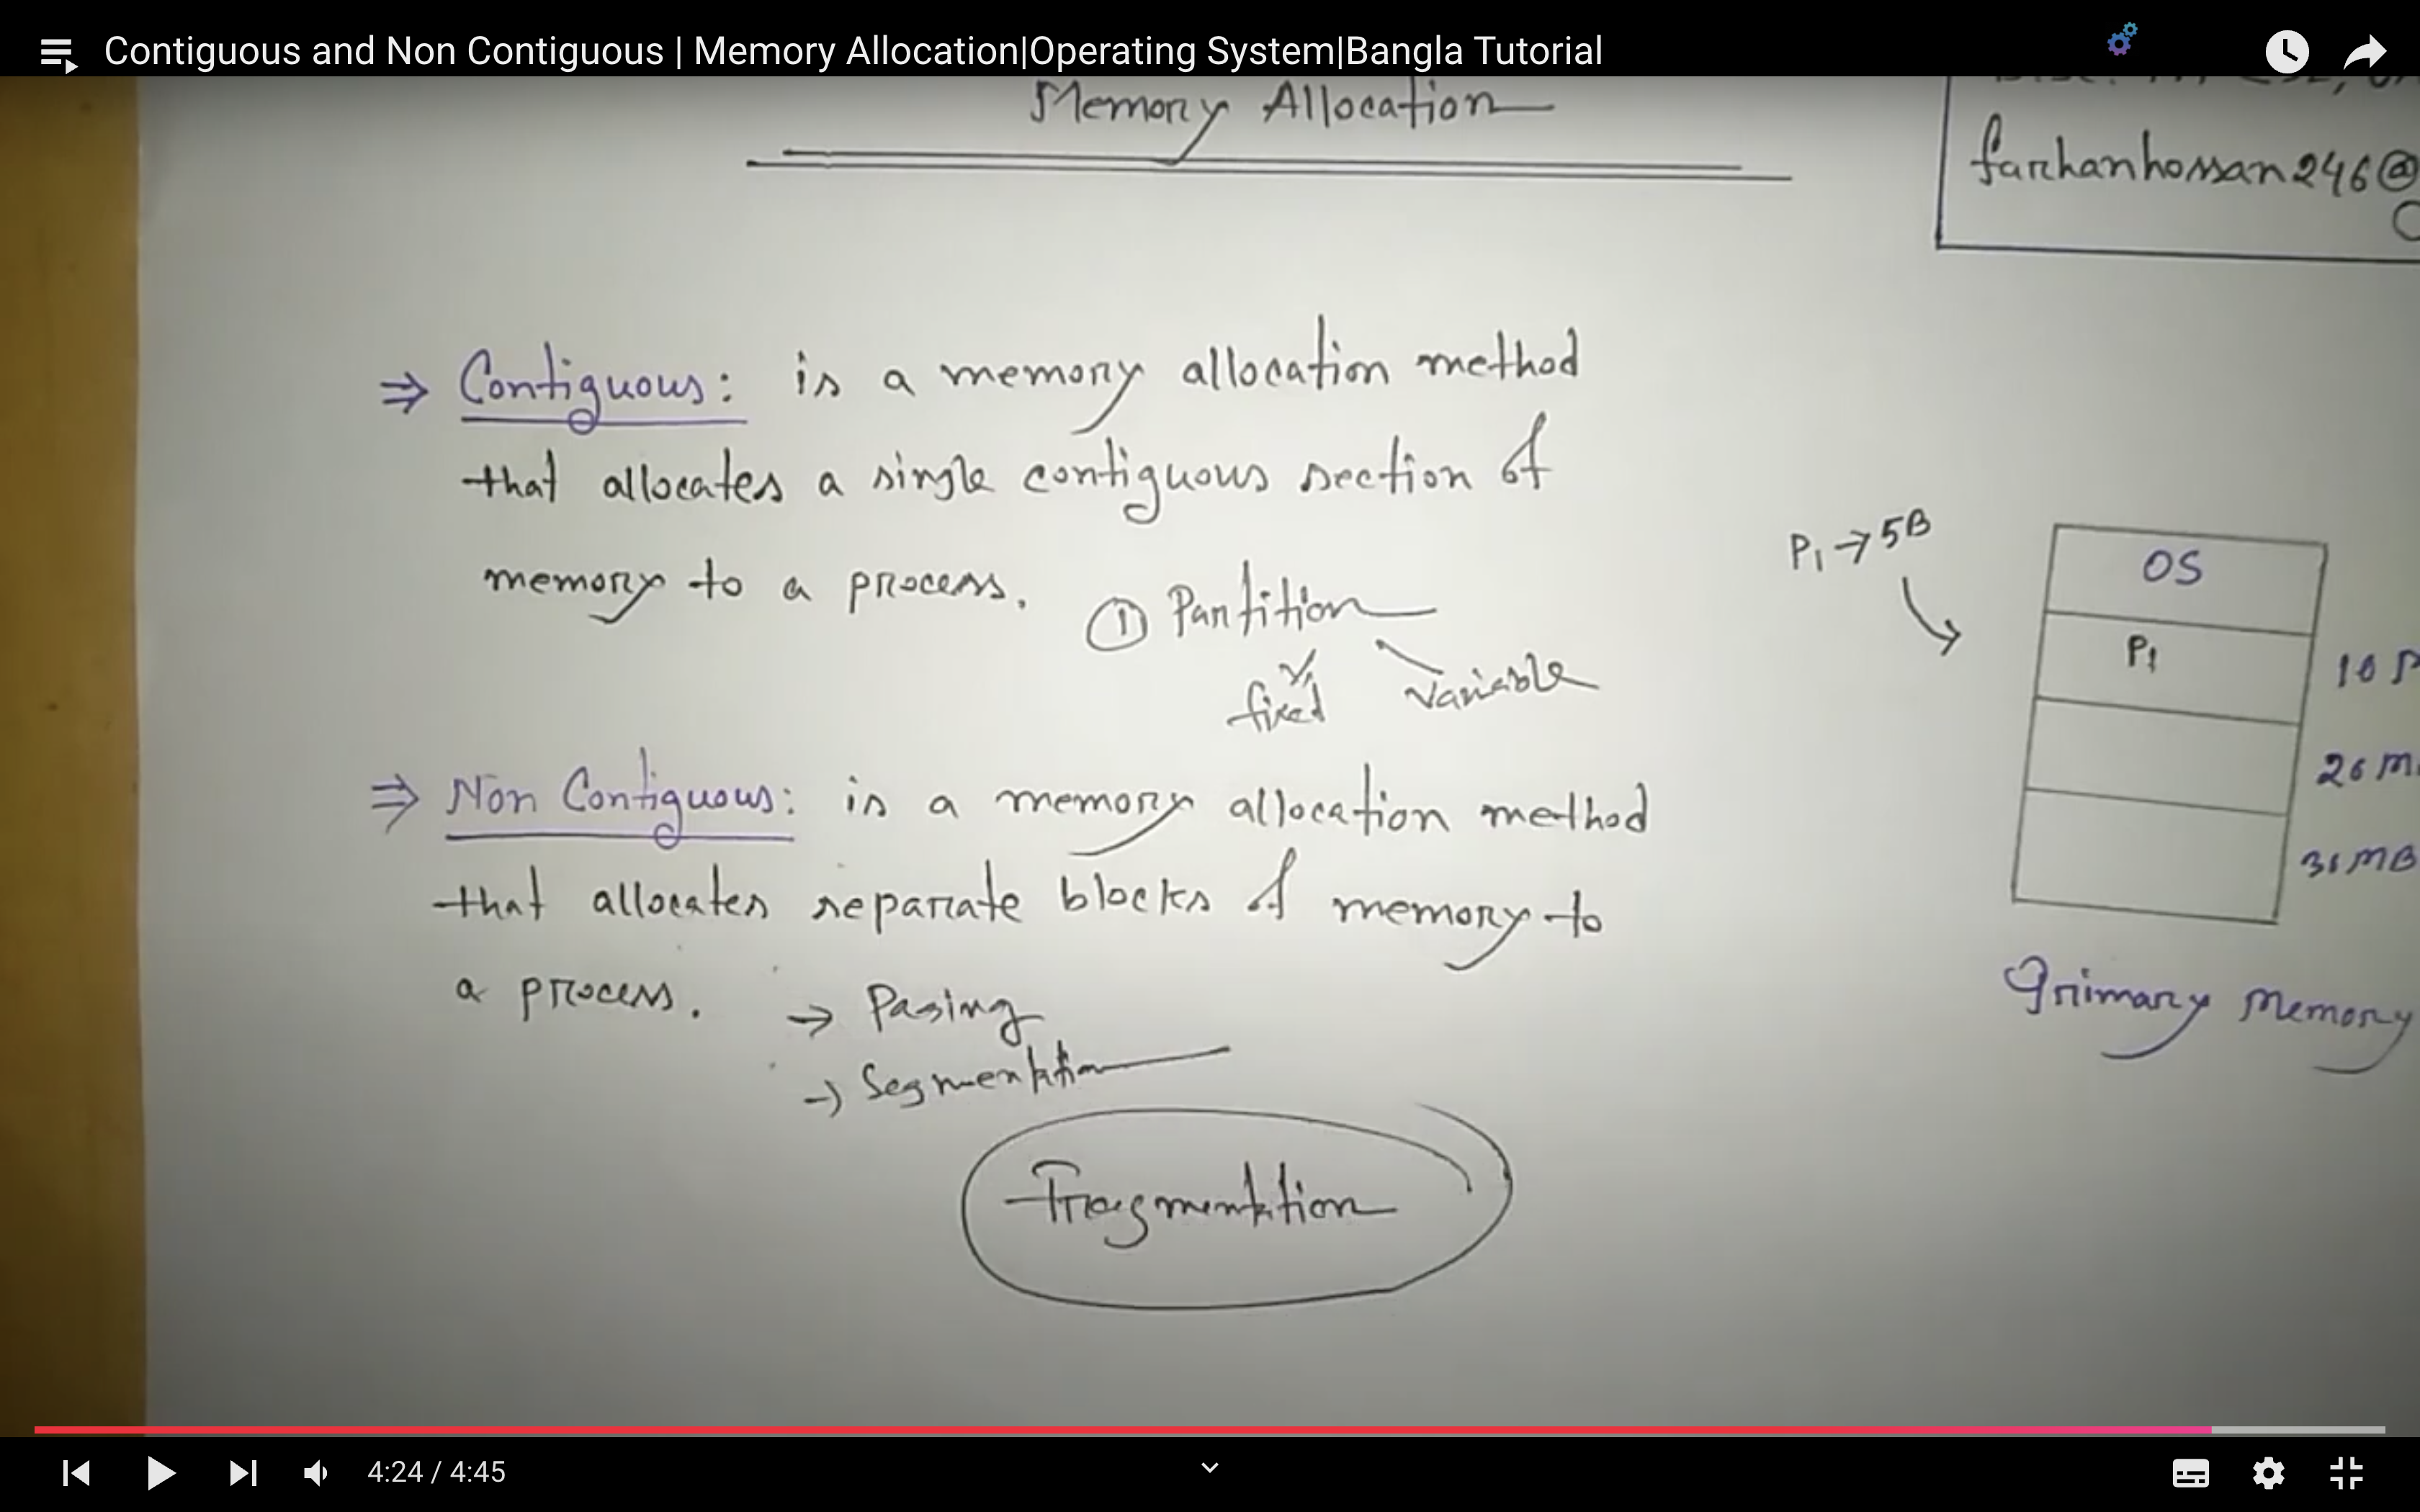 Contiguous and Non Contiguous | Memory Allocation|Operating System|Bangla Tutorial
Memory Allocation
farhanhossan246@
⇒ Contiguous: is a memory allocation method
that allocates a single contiguous section of
memory to a process.
① Partition
fixed variable
P1 → 5B
OS
P1
10
20 M
30 MB
Primary Memory
⇒ Non Contiguous: is a memory allocation method
that allocates separate blocks of memory to
a process. → Paging
→ Segmentation
Fragmentation
4:24 / 4:45